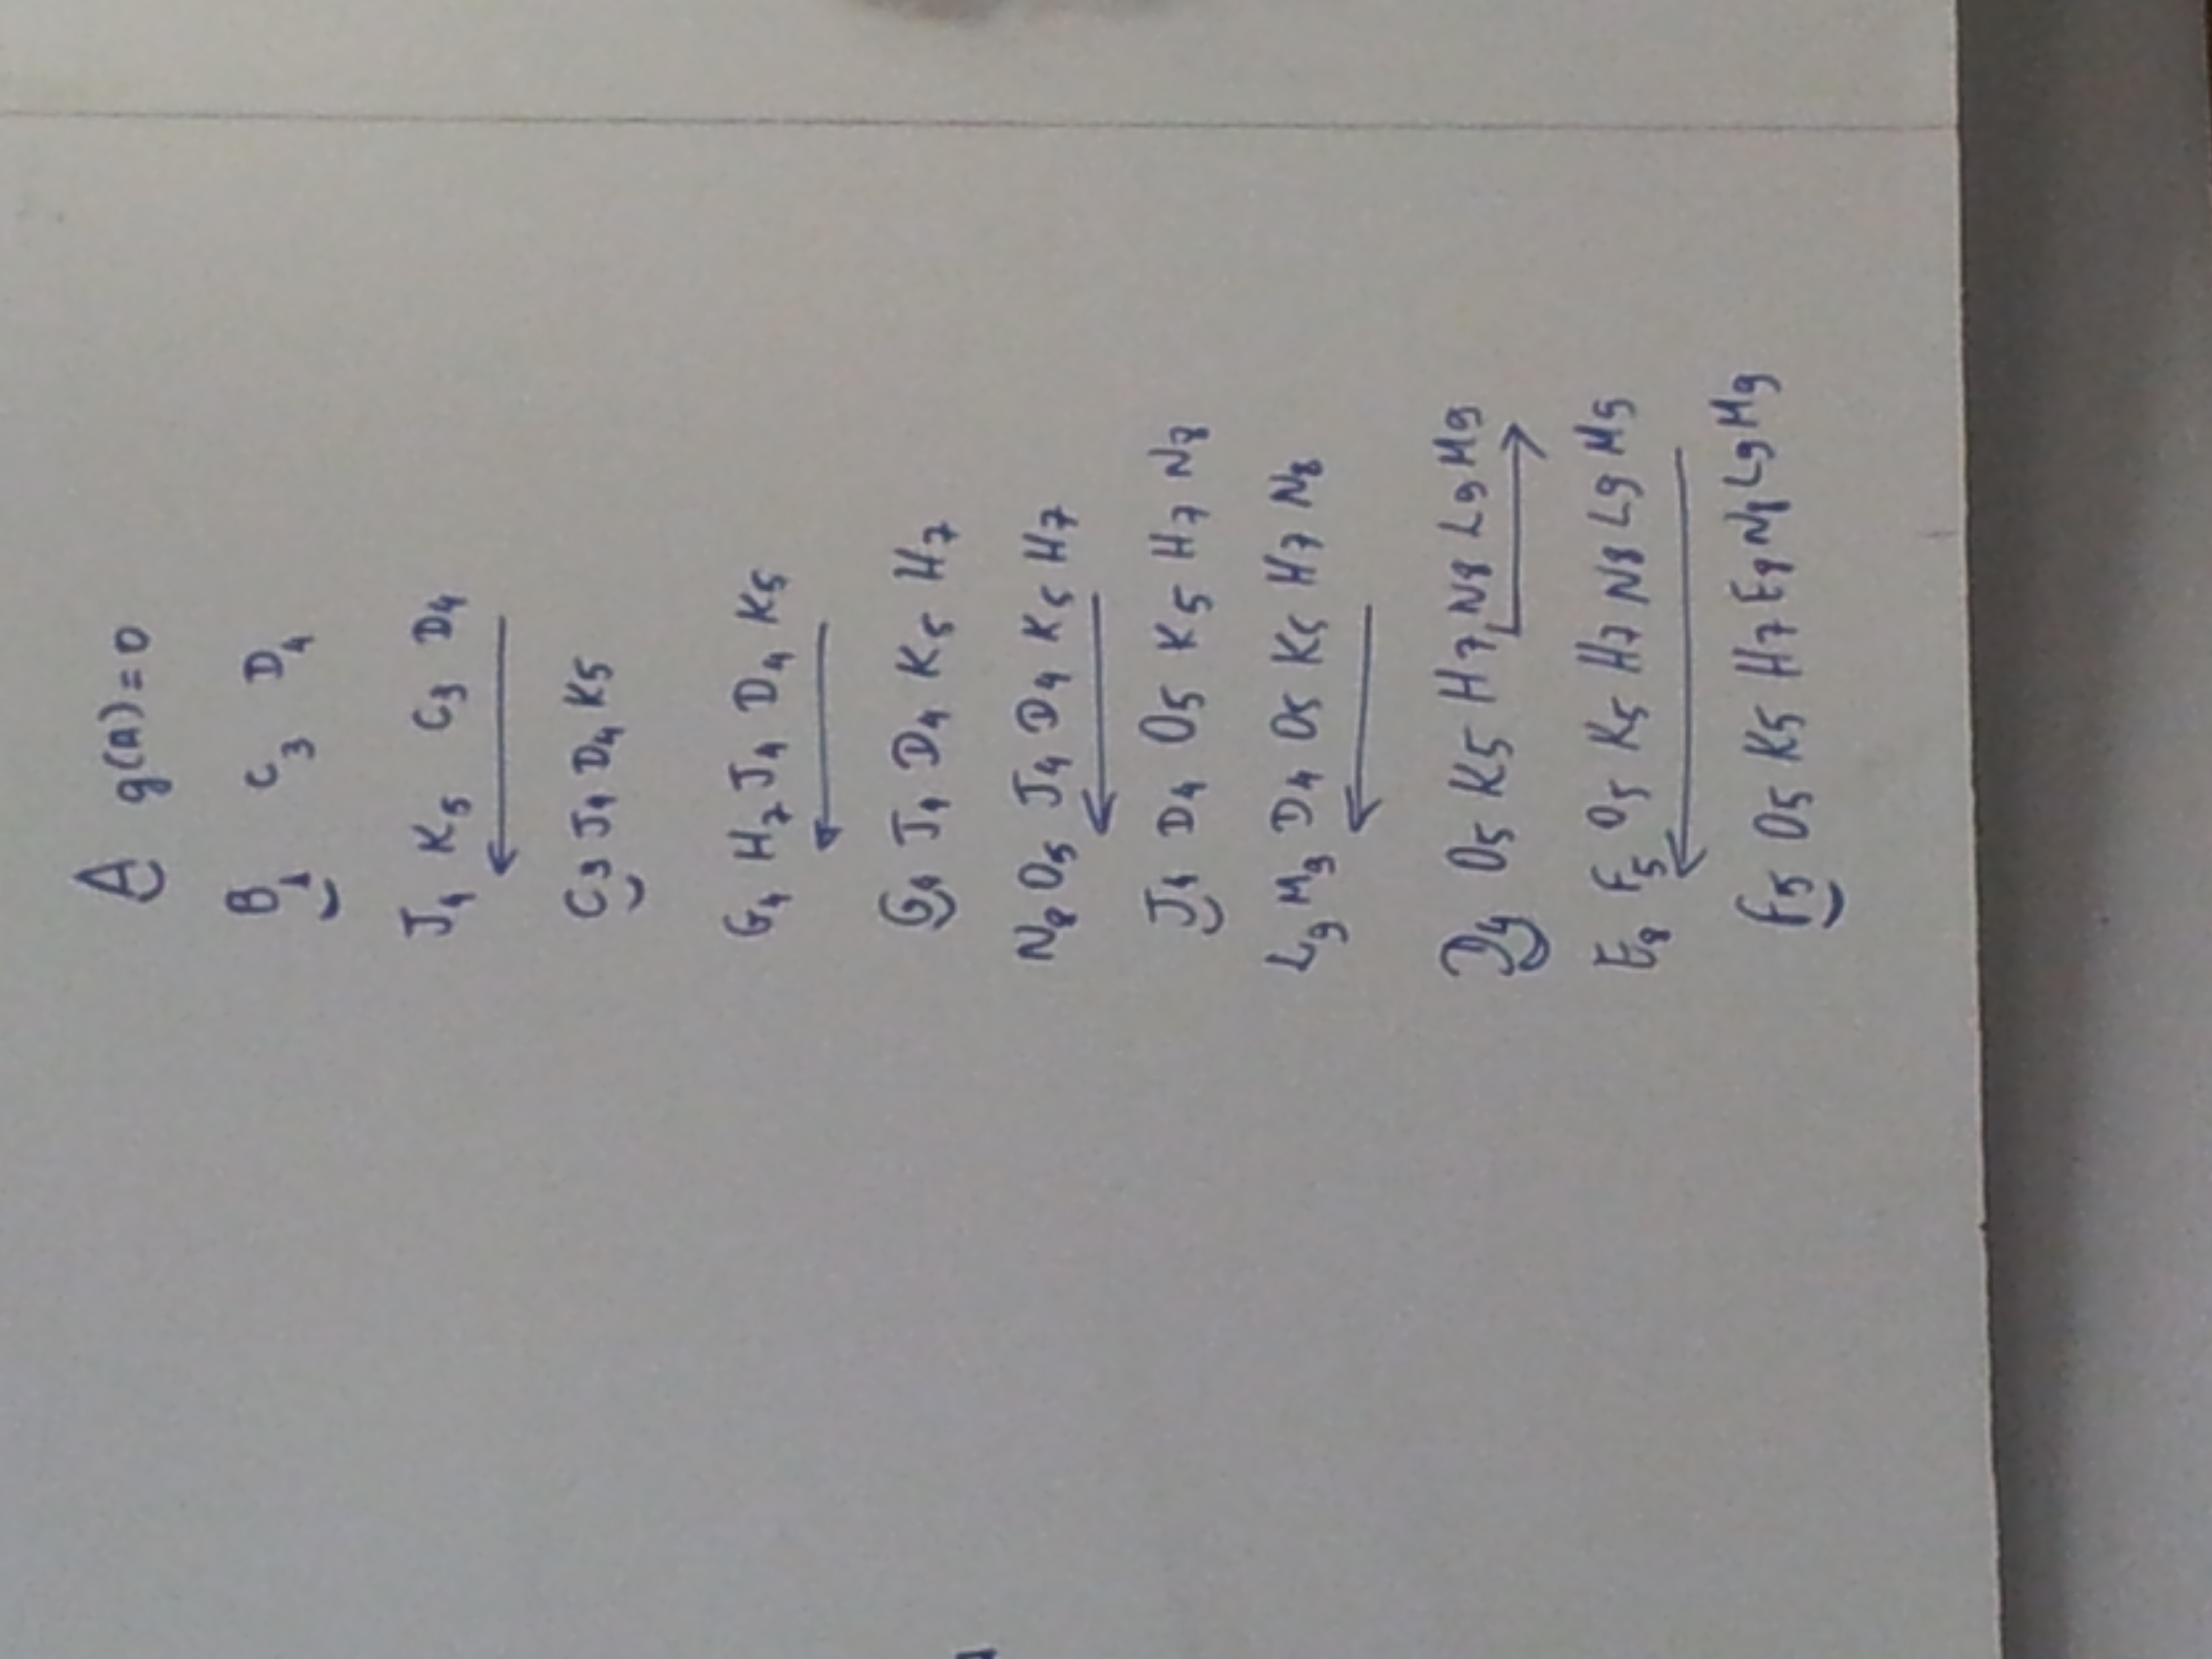 A g(A)=0
B1 C3 D4
J4 K5 C3 D4
C3 J4 D4 K5
G4 H7 J4 D4 K5
G4 J4 D4 K5 H7
N8 O5 J4 D4 K5 H7
J4 D4 O5 K5 H7 N8
L9 M9 D4 O5 K5 H7 N8
D4 O5 K5 H7 N8 L9 M9
E8 F5 O5 K5 H7 N8 L9 M9
F5 O5 K5 H7 E8 N8 L9 M9